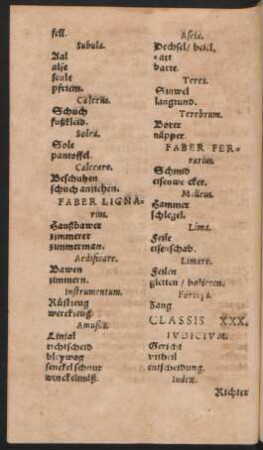 fell.
Subula.
Aal
alse
seule
pfriem.
Calceus.
Schuch
fußkleid.
Solea.
Sole
pantoffel.
Calceare.
Beschuhen
schuch anziehen.
FABER LIGNA-
rius.
Haußbawer
zimmerer
zimmerman.
Aedificare.
Bawen
zimmern.
Instrumentum.
Rüstzeug
werckzeug.
Amussis.
Linial
richtscheid
bleywag
senckelschnur
winckelmäß.
Ascia.
Dechsel/ beiel.
bart
barte.
Teres.
Sinwel
langrund.
Terebrum.
Borer
näpper.
FABER FER-
rarius.
Schmid
eisenwe cker.
Malleus.
Hammer
schlegel.
Lima.
Feile
eisenschab.
Limare.
Feilen
gletten / balieren.
Forceps.
Zang
CLASSIS XXX.
IVDICIVM.
Gericht
vrtheil
entscheidung.
Iudex.
Richter